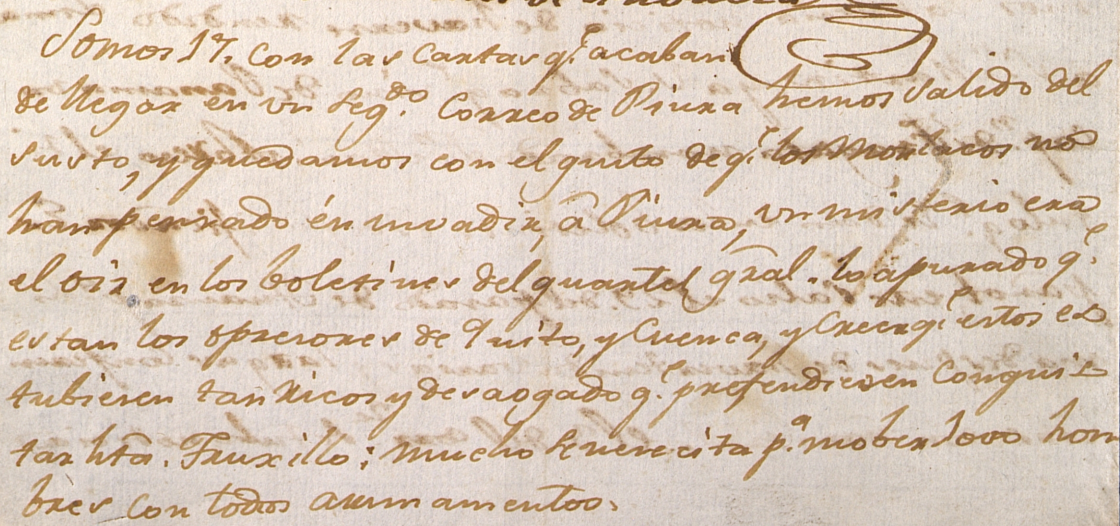 Somos 17. con las cartas q.e acaban
de llegar en vn seg.do Correo de Piura hemos salido del
susto, y quedamos con el gusto de q.e los Morlacos no
han pensado én invadir, â Piura, vn misterio era
el oir en los boletines del quartel gral. lo apurado q.e
estan los opresores de Quito, y Cuenca, y Creer q.e estos es
tubiesen tan Ricos y desaogado q.e pretendiesen Conquis
tar hta. Truxillo; mucho se necesita p.a mober 1000 hom
bres con todos armamentos.